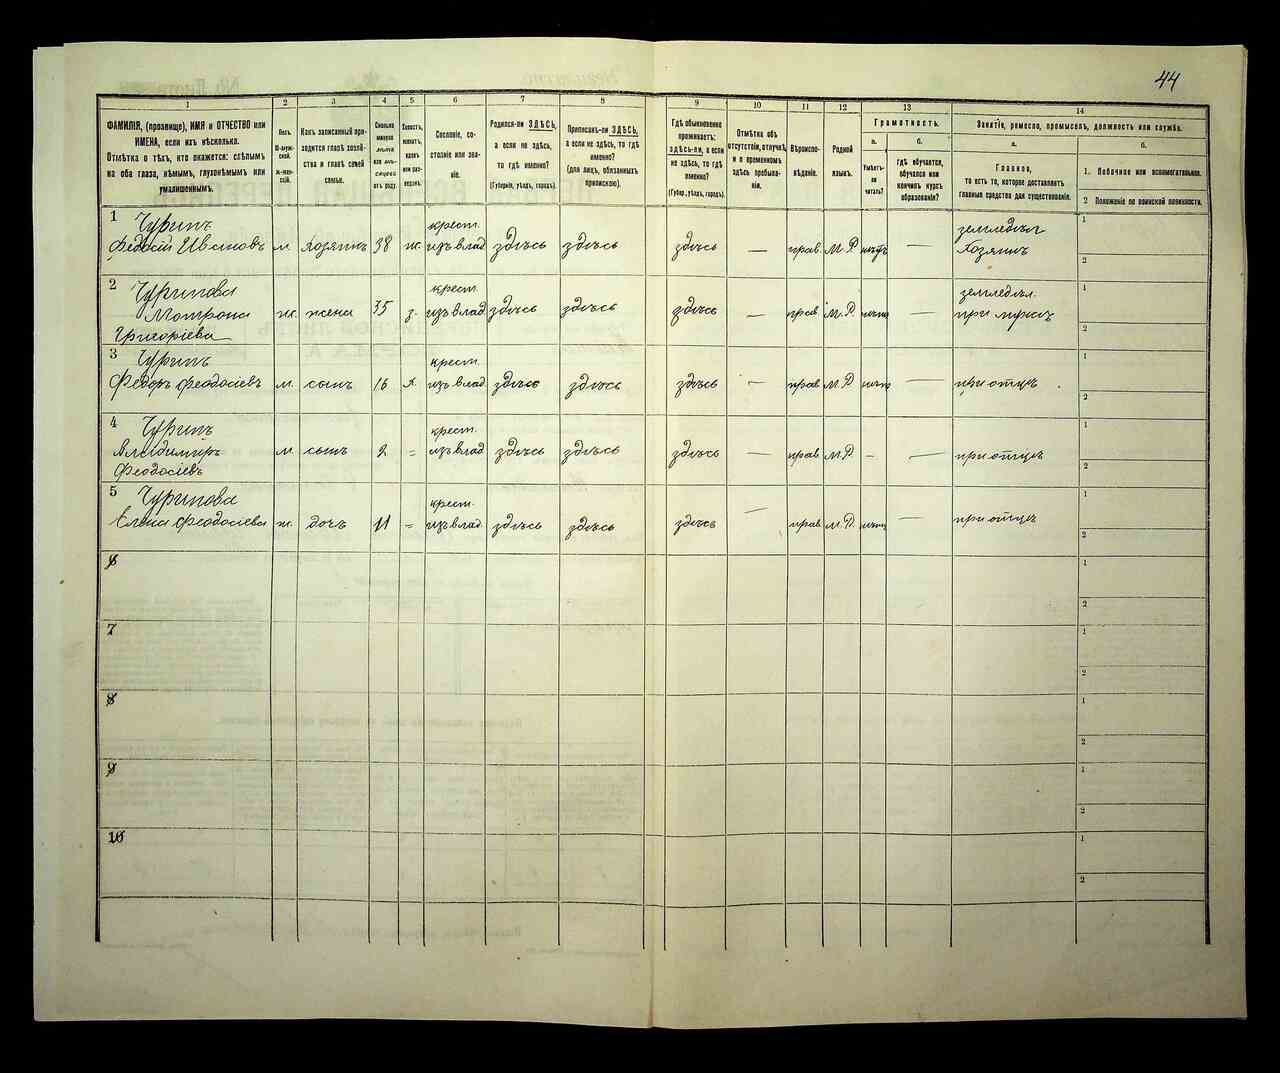 44
1
2
3
4
5
6
7
8
9
10
11
12
13
14
ФАМИЛІЯ, (прозвище), ИМЯ и ОТЧЕСТВО или
ИМЕНА, если ихъ нѣсколько.
Отмѣтка о тѣхъ, кто окажется: слѣпымъ
на оба глаза, нѣмымъ, глухонѣмымъ или
умалишеннымъ.
Полъ.
М-муж-
ской.
Ж-жен-
скій.
Какъ записанный при-
ходится главѣ хозяй-
ства и главѣ своей
семьи.
Сколько
минуло
лѣтъ
или мѣ-
сяцевъ
отъ роду.
Холостъ,
женатъ,
вдовъ
или раз-
веденъ.
Сословіе, со-
стояніе или зва-
ніе.
Родился-ли ЗДѢСЬ,
а если не здѣсь,
то гдѣ именно?
(Губернія, уѣздъ, городъ).
Приписанъ-ли ЗДѢСЬ,
а если не здѣсь, то гдѣ
именно?
(для лицъ, обязанныхъ
припискою).
Гдѣ обыкновенно
проживаетъ:
здѣсь-ли, а если
не здѣсь, то гдѣ
именно?
(Губер., уѣздъ, городъ).
Отмѣтка объ
отсутствіи, отлучкѣ
и о временномъ
здѣсь пребыва-
ніи.
Вѣроиспо-
вѣданіе.
Родной
языкъ.
Грамотность.
а.
б.
Умѣетъ-
ли
читать?
Гдѣ обучается,
обучался или
кончилъ курсъ
образованія?
Занятіе, ремесло, промыселъ, должность или служба.
а.
б.
Главное,
то есть то, которое доставляетъ
главныя средства для существованія.
1. Побочное или вспомогательное.
2 Положеніе по воинской повинности.
1 Чуринъ крест. земледѣл 1
Федосій Ивановъ м. хозяинъ 38 ж. изъ влад здѣсь здѣсь здѣсь — прав. М. Р нѣтъ — Хозяинъ
2
2 Чуринова крест. земледѣл. 1
Матрона ж. жена 35 з. изъ влад здѣсь здѣсь здѣсь — прав М. Р нѣтъ — при мужѣ
Григоріева 2
3 Чуринъ крест. 1
Федоръ Феодосіевъ м. сынъ 16 х. изъ влад здѣсь здѣсь здѣсь — прав М. Р нѣтъ — при отцѣ
2
4 Чуринъ крест. 1
Владимиръ м. сынъ 2 = изъ влад здѣсь здѣсь здѣсь — прав М. Р – — при отцѣ
Феодосіевъ 2
5 Чуринова крест. 1
Елена Феодосіева ж. дочь 11 = изъ влад здѣсь здѣсь здѣсь — прав м. Р. нѣтъ — при отцѣ
2
6 1
2
7 1
2
8 1
2
9 1
2
10 1
2